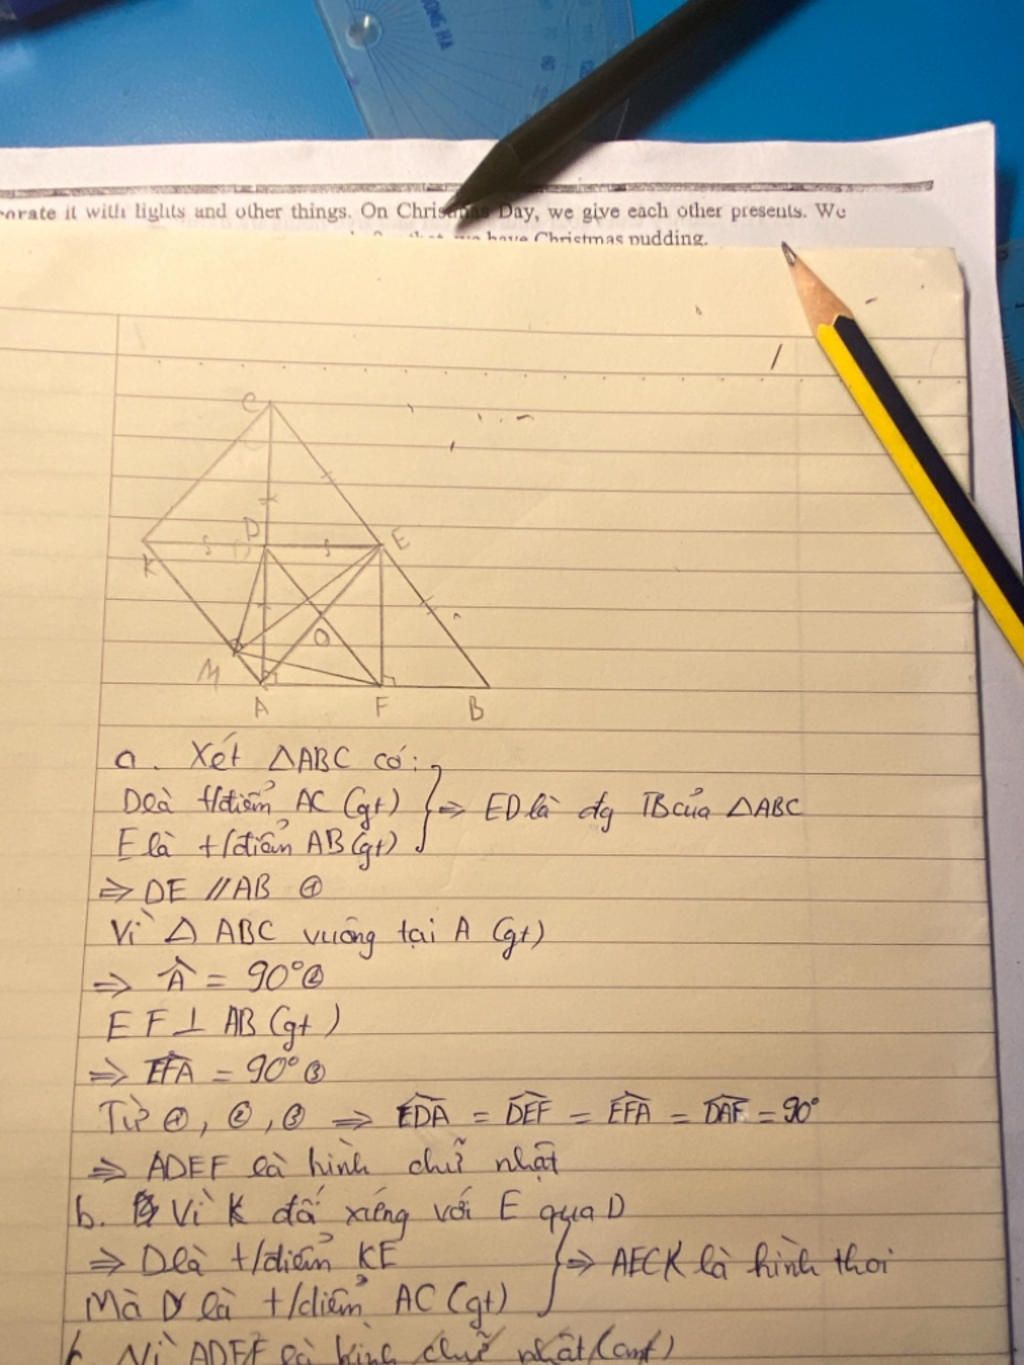 orate it with lights and other things. On Christmas Day, we give each other presents. We
have Christmas pudding.
C
D
E
K
O
M
A
F
B
a. Xét △ABC có:
D là t/điểm AC (gt)
E là t/điểm AB (gt)
⇒ ED là đg TB của △ABC
⇒ DE // AB ①
Vì △ ABC vuông tại A (gt)
⇒ Â = 90° ②
EF ⊥ AB (gt)
⇒ EFA = 90° ③
Từ ①, ②, ③ ⇒ EDA = DEF = EFA = DAF = 90°
⇒ ADEF là hình chữ nhật
b. Vì K đố xiếng với E qua D
⇒ D là t/điểm KE
Mà D là t/điểm AC (gt)
⇒ AECK là hình thoi
Vì ADEF là hình chữ nhật (cmt)